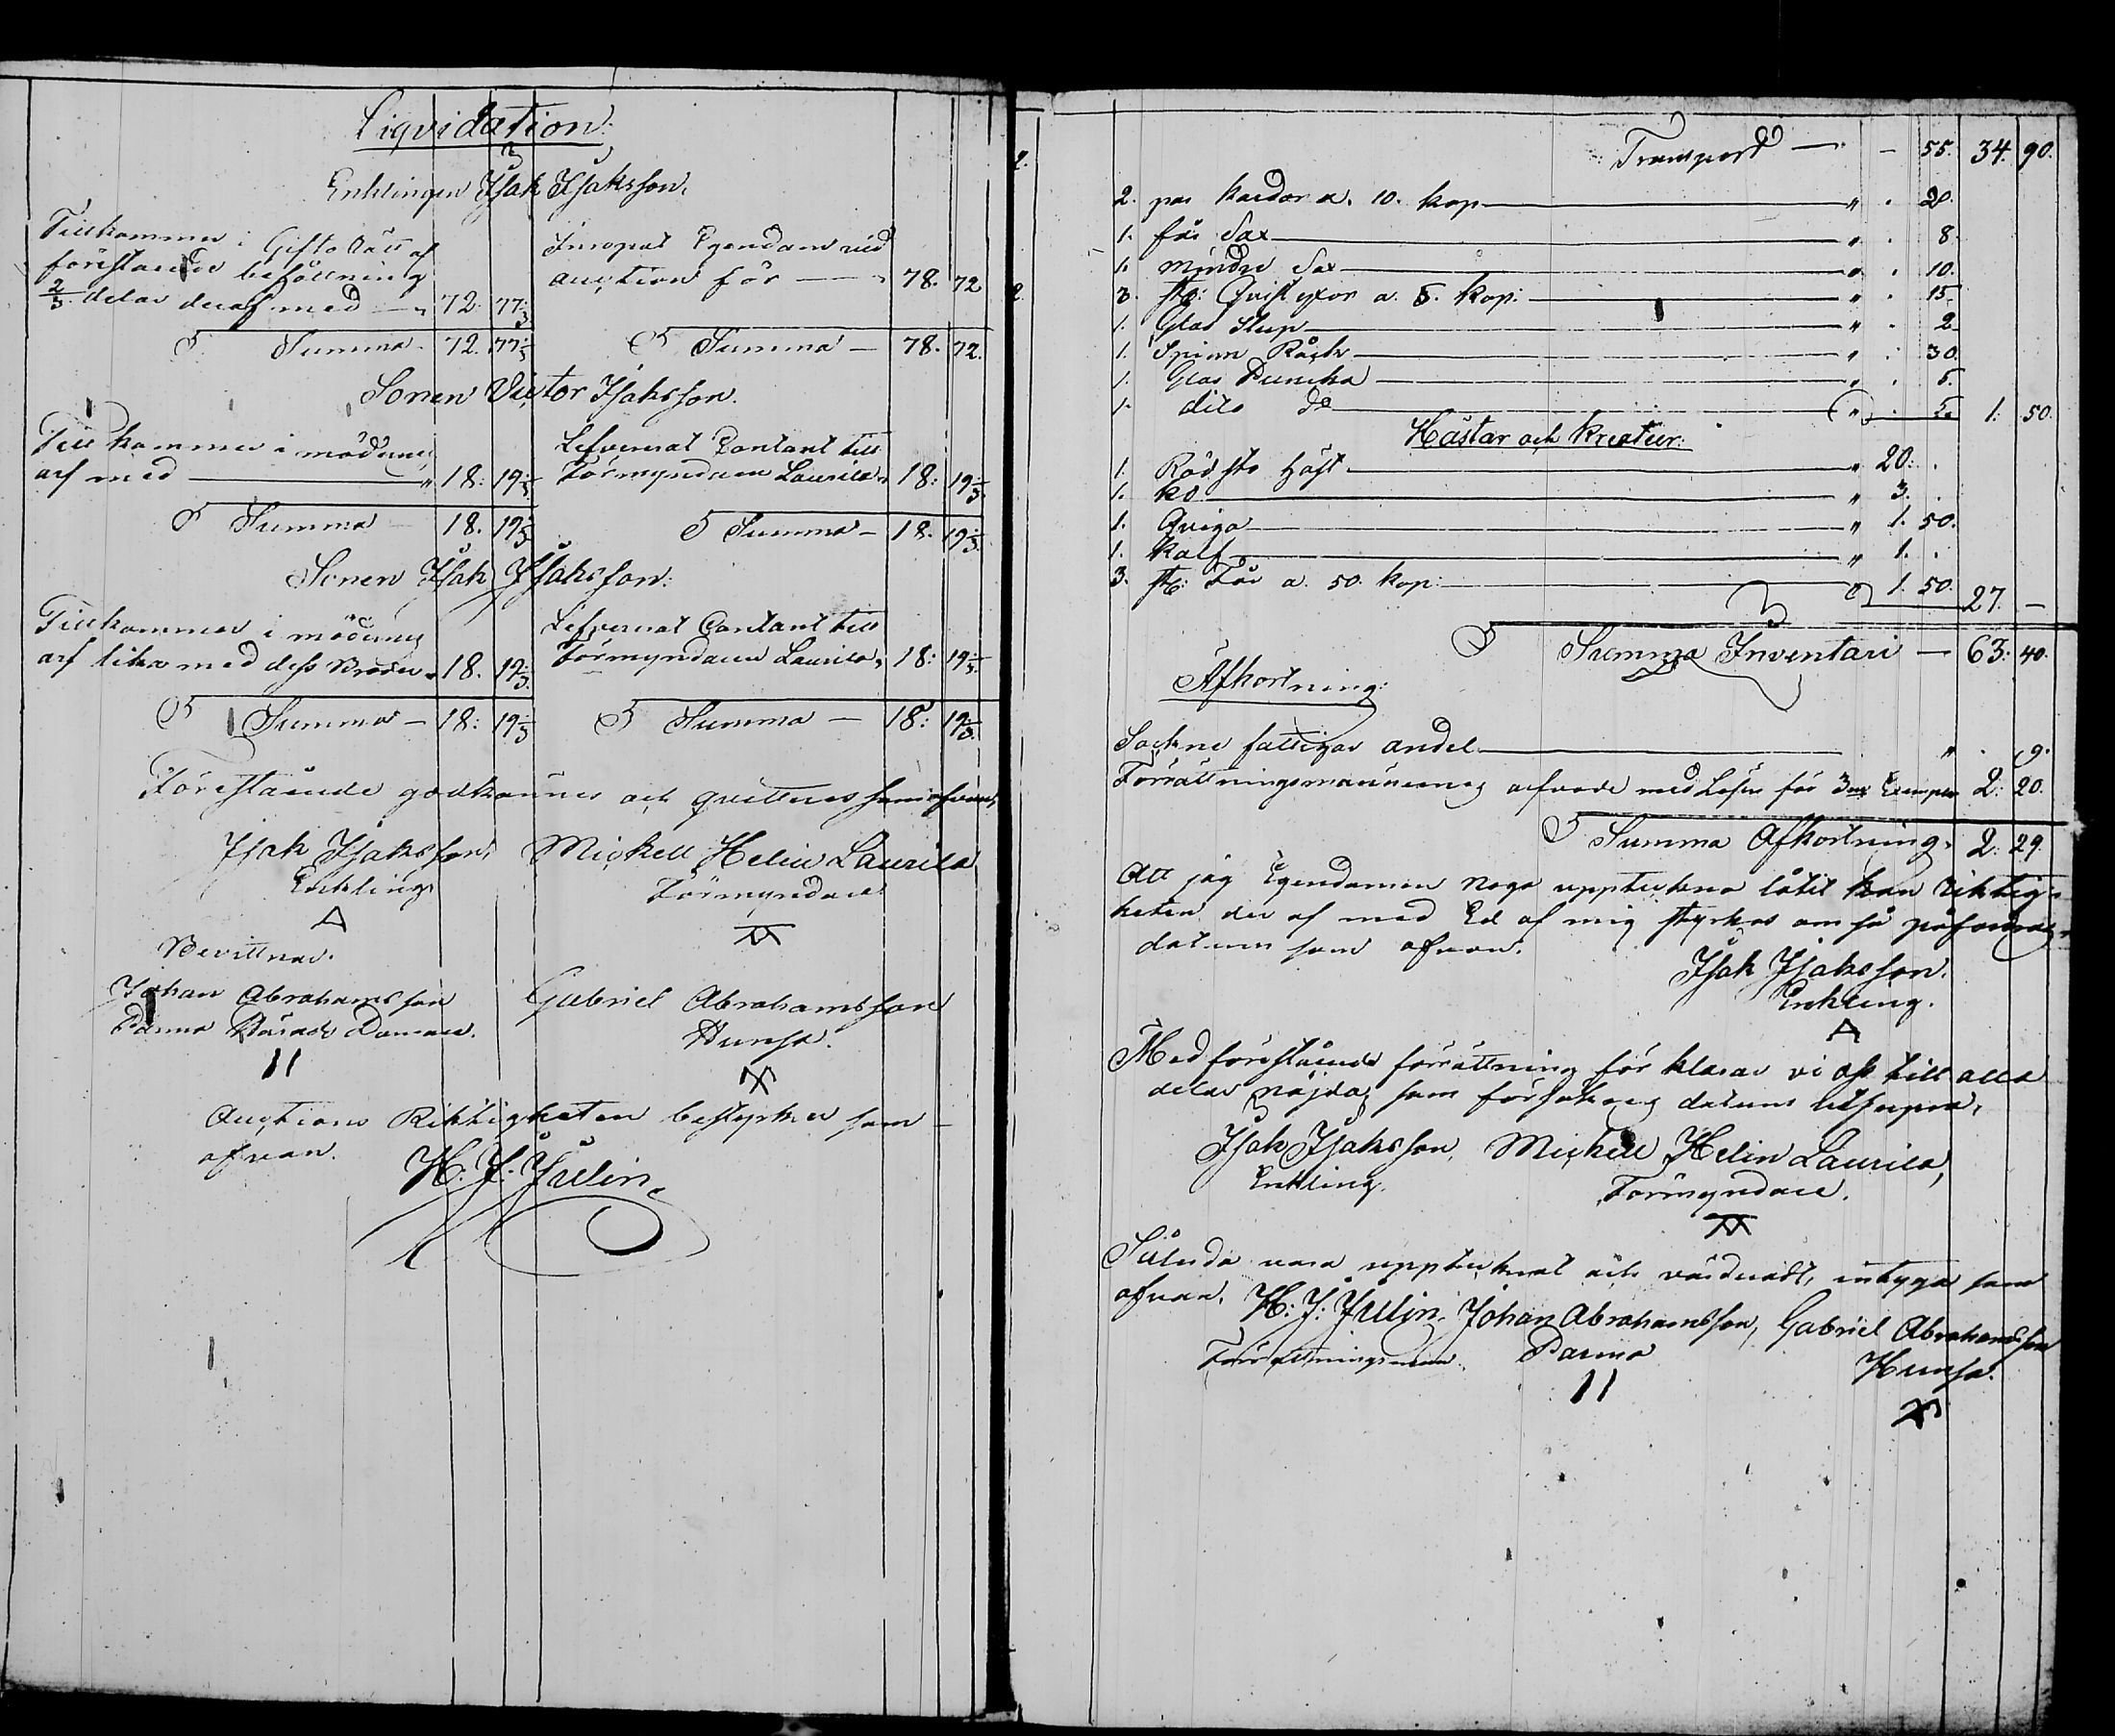 Liqvidation.
Enklingen Isak Isaksson.
Tillkommer i Gifto Rätt af
förestående behållning
2/3 delar deraf med — " 72: 77 1/3
S Summa - 72. 77 1/3
Inropat Egendom vid
auction för — " 78. 72
S Summa — 78. 72.
Sonen Victor Isaksson.
Till kommer i möderne
arf med — " 18: 19 1/3
S Summa 18. 19 1/3
Lefvererat Contant till
Förmyndaren Laurila " 18: 19 1/3
S Summa — 18. 19 1/3
Sonen Isak Isaksson.
Tillkommer i möderne
arf lika med dess Broder " 18. 19 1/3
S Summa — 18: 19 1/3
Lefvererat Contant till
Förmyndaren Laurila " 18: 19 1/3
S Summa — 18: 19 1/3
Förestående godkännes och qvitteras som ofvan,
Isak Isaksson, Mickell Helin Laurila
Enkling. Förmyndare
Bevittnar.
Johan Abrahamsson Gabriel Abrahamsson
Parma Hunsa.
Auctions Riktigheten bestyrker som
ofvan. H: J: Julin.
Transport — - 55. 34. 90.
2. par kardor a. 10. kop — " . 20.
1. får Sax — " . 8.
1. mindre Sax — " . 10.
3. st: Qvist yxor a. 5. kop: — " . 15.
1. Glas Stup — " . 2
1. Spinn Råck — " . 30.
1. Glas Puncka — " . 5.
1. dito do — " . 5. 1. 50.
Hästar och Kreatur:
1. Röd sto Häst — " 20: .
1. Ko — " 3. .
1. Qviga — " 1. 50.
1. Kalf — " 1. .
3. st: Får a. 50. kop: — " 1. 50. 27. —
S Summa Inventari — 63: 40.
Afkortning:
Sockne fattigas andel — " . 9.
Förrättningsmännernes arfvode med Lösen för 3ne Exemplar 2: 20.
S Summa Afkortning. 2: 29.
Att jag Egendomen noga uppteckna låtit kan riktig-
heten der af med Ed af mig styrkas om så påfordras
datum som ofvan.
Isak Isaksson.
Enkling.
Med förestående förrättning för klarar vi oss till alla
delar nöjda, som försäkras datum utsupra,
Isak Isaksson, Mickell Helin Laurila,
Enkling. Förmyndare.
Sålunda vara upptecknat och värderadt, intyga som
ofvan. H: J: Julin, Johan Abrahamsson, Gabriel Abrahamsson
Förrättningsman. Parma Hunsa.